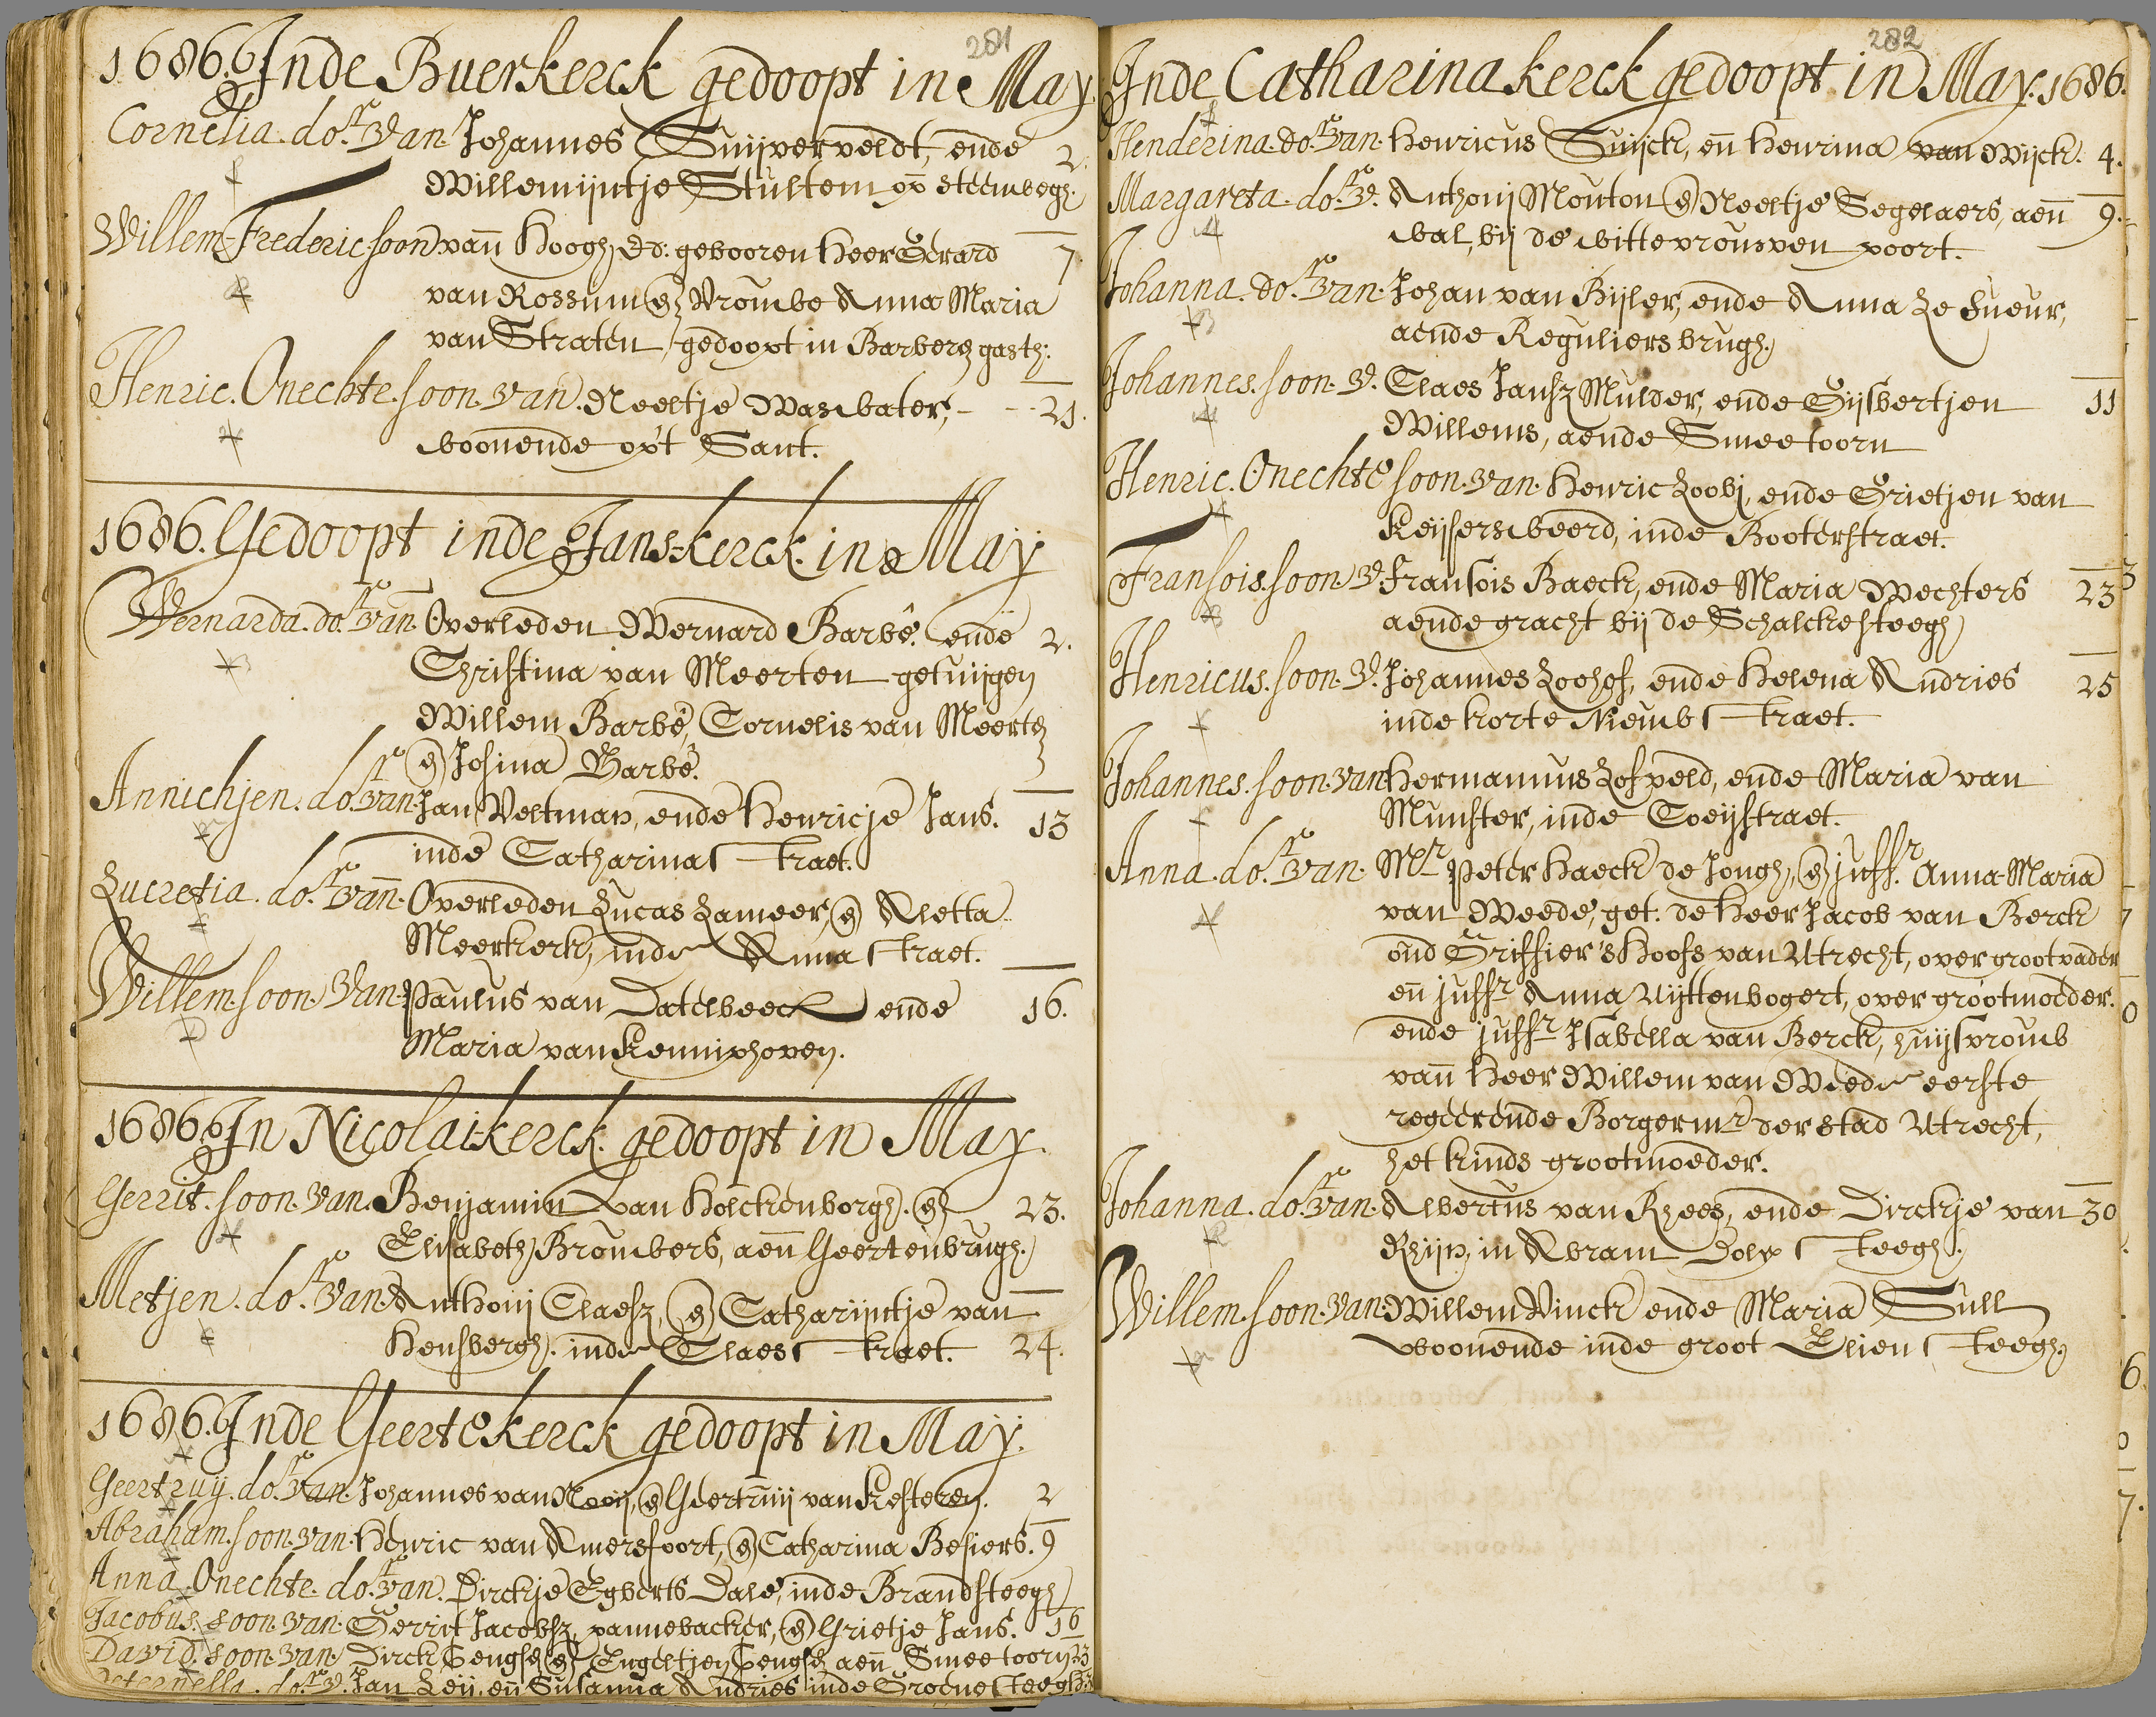 281
1686. Inde Buerkerck gedoopt in May
Cornelia. dor. van. Johannes Suijverveldt, ende 2.
Willemijntje Stultem op steenwegh.
Willem Frederic soon van Hoogh Ed: gebooren Heer Gerard 7.
van Rossum en Vrouwe Anna Maria
van Straten, gedoopt in Barberen gasth:
Henric. Onechte. soon. van. Neeltje Waswater, - - 21.
woonende op't Sant.
1686. Gedoopt inde Jans-kerck. in May
Wernarda. dor. van. Overleden Wernard Barbé. ende 2.
Christina van Meerten getuijgen
Willem Barbé, Cornelis van Meerten
en Josina Barbé.
Annichjen. dor. van. Jan Veltman, ende Henricje Jans. 13
inde Catharinastraet.
Lucretia. dor. van. Overleden Lucas Lameer, en Aletta
Meerkerk, inde Annastraet.
Willem. soon. van. Paulus van Datelbeeck ende 16.
Maria van Kenniphoven.
1686. In Nicolai-kerck. gedoopt in May.
Gerrit. soon. van. Benjamin van Kolckenborgh. en 23.
Elisabeth Brouwers, aen Geertenbrugh.
Metjen. dor. van. Anthonij Claesz, en Catharijntje van
Hensbergh. inde Claesstraet. 24.
1686. Inde Geertekerck gedoopt in May.
Geertruij. dor. van. Johannes van Nooij, en Geertruij van Kesteren. 2
Abraham. soon. van. Henric van Amersfoort, en Catharina Besiers. 9
Anna. Onechte. dor. van. Dirckje Egberts Dale, inde Brandsteegh
Jacobus. soon. van. Gerrit Jacobsz, pannebacker, en Grietje Jans. 16
David. soon. van. Dirck en Engeltjen aen Smeetoorn 23
Peternella. dor. v. Jan Leij, en Susanna Andries inde Groenesteegh.
282
Inde Catharina kerck gedoopt in May. 1686.
Henderina. dor. van. Henricus Suijck, en Henrina van Wijck. 4.
Margareta. dor. v. Anthonij Mouton en Neeltje Segelaers, aen 9.
wal, bij de wittevrouwen poort.
Johanna. dor. van. Johan van Bijler, ende Anna Le Sueur,
aende Reguliersbrugh.
Johannes. soon. v. Claes Jansz Mulder, ende Gijsbertjen 11
Willems, aende Smeetoorn
Henric. Onechte soon. van. Henric Loobj, ende Grietjen van
Keijsersweerd, inde Booterstraet.
Fransois. soon. v. Fransois Baeck, ende Maria Wechters 23
aende gracht bij de Schalckesteegh
Henricus. soon. v. Johannes Loohof, ende Helena Andries 25
inde korte Nieuwstraet.
Johannes. soon. van Hermannus Lofveld, ende Maria van
Munster, inde Coeijstraet.
Anna. dor. van. Mr Peter Haeck de Jongh, en juffr. Anna Maria
van Weede, get. de Heer Jacob van Berck
oud Griffier 's Hoofs van Utrecht, over grootvader
en juffr Anna Uijttenbogert, over grootmoeder.
ende juffr Isabella van Berck, huijsvrouw
van Heer Willem van Weede eerste
regeerende Borgermr der stad Utrecht,
het kinds grootmoeder.
Johanna. dor. van. Albertus van Rhees, ende Dirckje van 30
Rhijn, in Abram Dolesteegh.
Willem. soon. van. Willem Vinck ende Maria Sull
woonende inde groot Eliensteegh